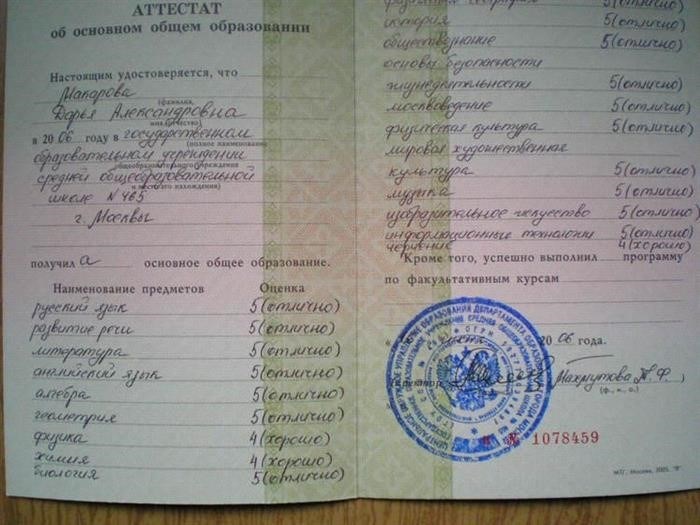 АТТЕСТАТ
об основном общем образовании
Настоящим удостоверяется, что
Макарова
(фамилия,
Дарья Александровна
имя, отчество)
в 2006 году в государственном
(полное наименование
образовательном учреждении
общеобразовательного учреждения
средней общеобразовательной
и место его нахождения)
школе №465
г. Москвы
получила основное общее образование.
Наименование предметов Оценка
русский язык 5(отлично)
развитие речи 5(отлично)
литература 5(отлично)
английский язык 5(отлично)
алгебра 5(отлично)
геометрия 5(отлично)
физика 4(хорошо)
химия 4(хорошо)
биология 5(отлично)
физическая география 5(отлично)
история 5(отлично)
обществознание 5(отлично)
основы безопасности
жизнедеятельности 5(отлично)
москвоведение 5(отлично)
физическая культура 5(отлично)
мировая художественная
культура 5(отлично)
музыка 5(отлично)
изобразительное искусство 5(отлично)
информационные технологии 5(отлично)
черчение 4(хорошо)
Кроме того, успешно выполнил программу
по факультативным курсам
2006 года.
Директор Махмутова Т.Ф.
(ф., и., о.)
1078459
МПГ, Москва, 2005, "В".